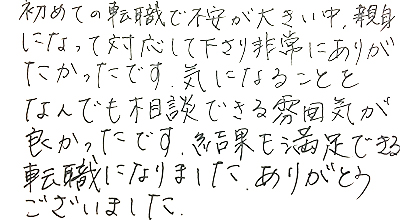 初めての転職で不安が大きい中、親身
になって対応して下さり非常にありが
たかったです。気になることを
なんでも相談できる雰囲気が
良かったです。結果も満足できる
転職になりました。ありがとう
ございました。